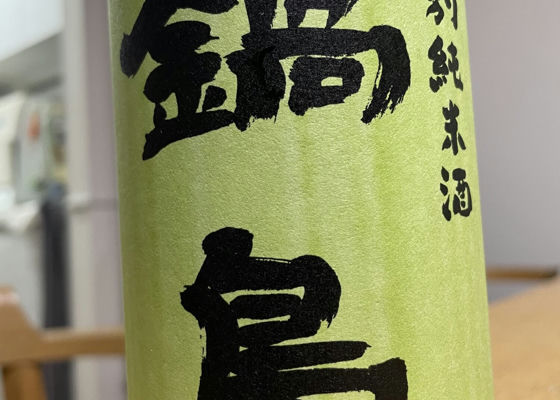 別純米酒
鍋島